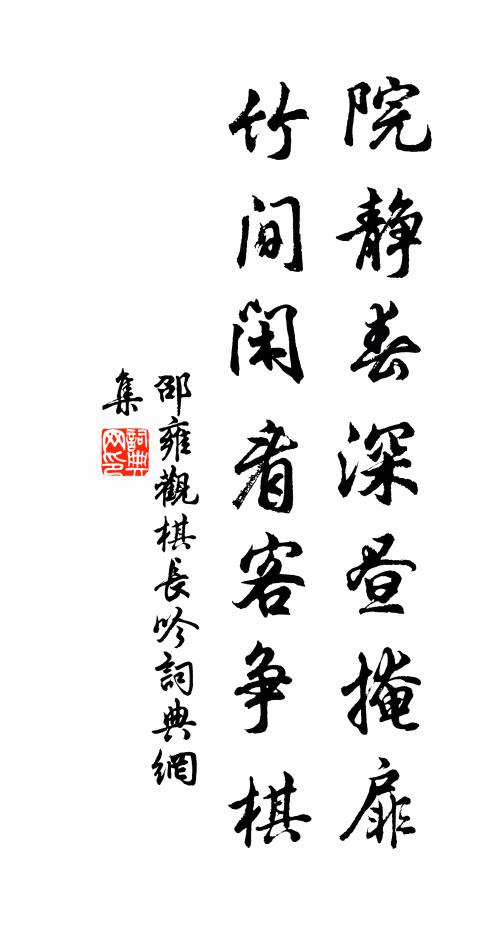 院静春深昼掩扉
竹间闲看客争棋
邵雍觀棋長吟詞典網
集
詞典網印